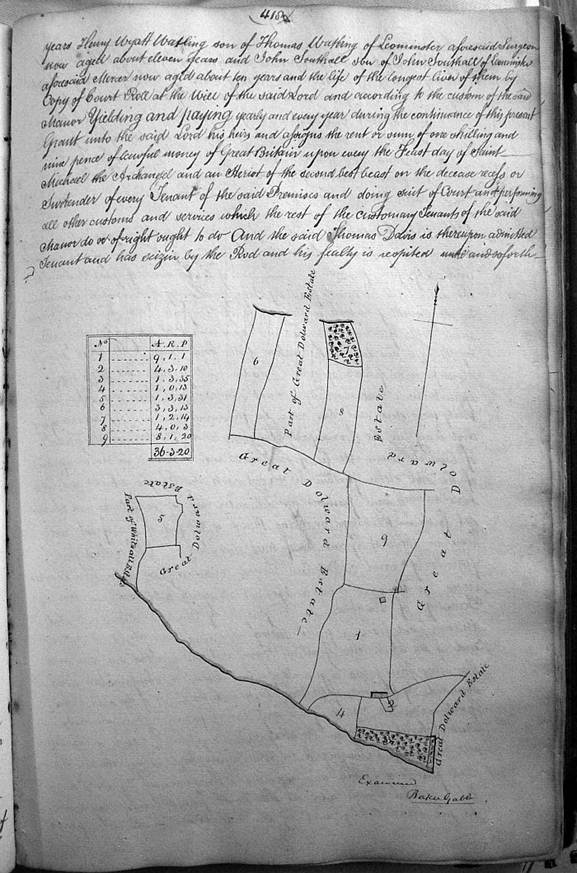 418
years Henry Wyatt Watling son of Thomas Watling of Leominster aforesaid Surgeon
now aged about eleven years and John Southall son of John Southall of Leominster
aforesaid Mercer now aged about ten years and the life of the longest liver of them by
Copy of Court Roll at the Will of the said Lord and according to the custom of the said
Manor Yielding and paying yearly and every year during the continuance of this present
Grant unto the said Lord his heirs and assigns the rent or sum of one shilling and
nine pence of lawful money of Great Britain upon every the Feast day of Saint
Michael the Archangel and an Heriot of the second best beast on the decease recess or
Surrender of every Tenant of the said Premises and doing suit of Court and performing
all other customs and services which the rest of the customary Tenants of the said
Manor do or of right ought to do And the said Thomas is thereupon admitted
Tenant and has seizin by the Rod and his fealty is respited and so forth
No A. R. P
1 9. 1. 1
2 4. 3. 10
3 1. 3. 35
4 1. 0. 13
5 1. 3. 31
6 3. 3. 13
7 1. 2. 14
8 4. 0. 3
9 8. 1. 20
36-3-20
6
Part of Great Dolward Estate
7
8
Great Dolward Estate
Great Dolward Estate
5
Part of Estate
Great Dolward Estate
9
1
4
Great Dolward Estate
Examined
Baker Gabb